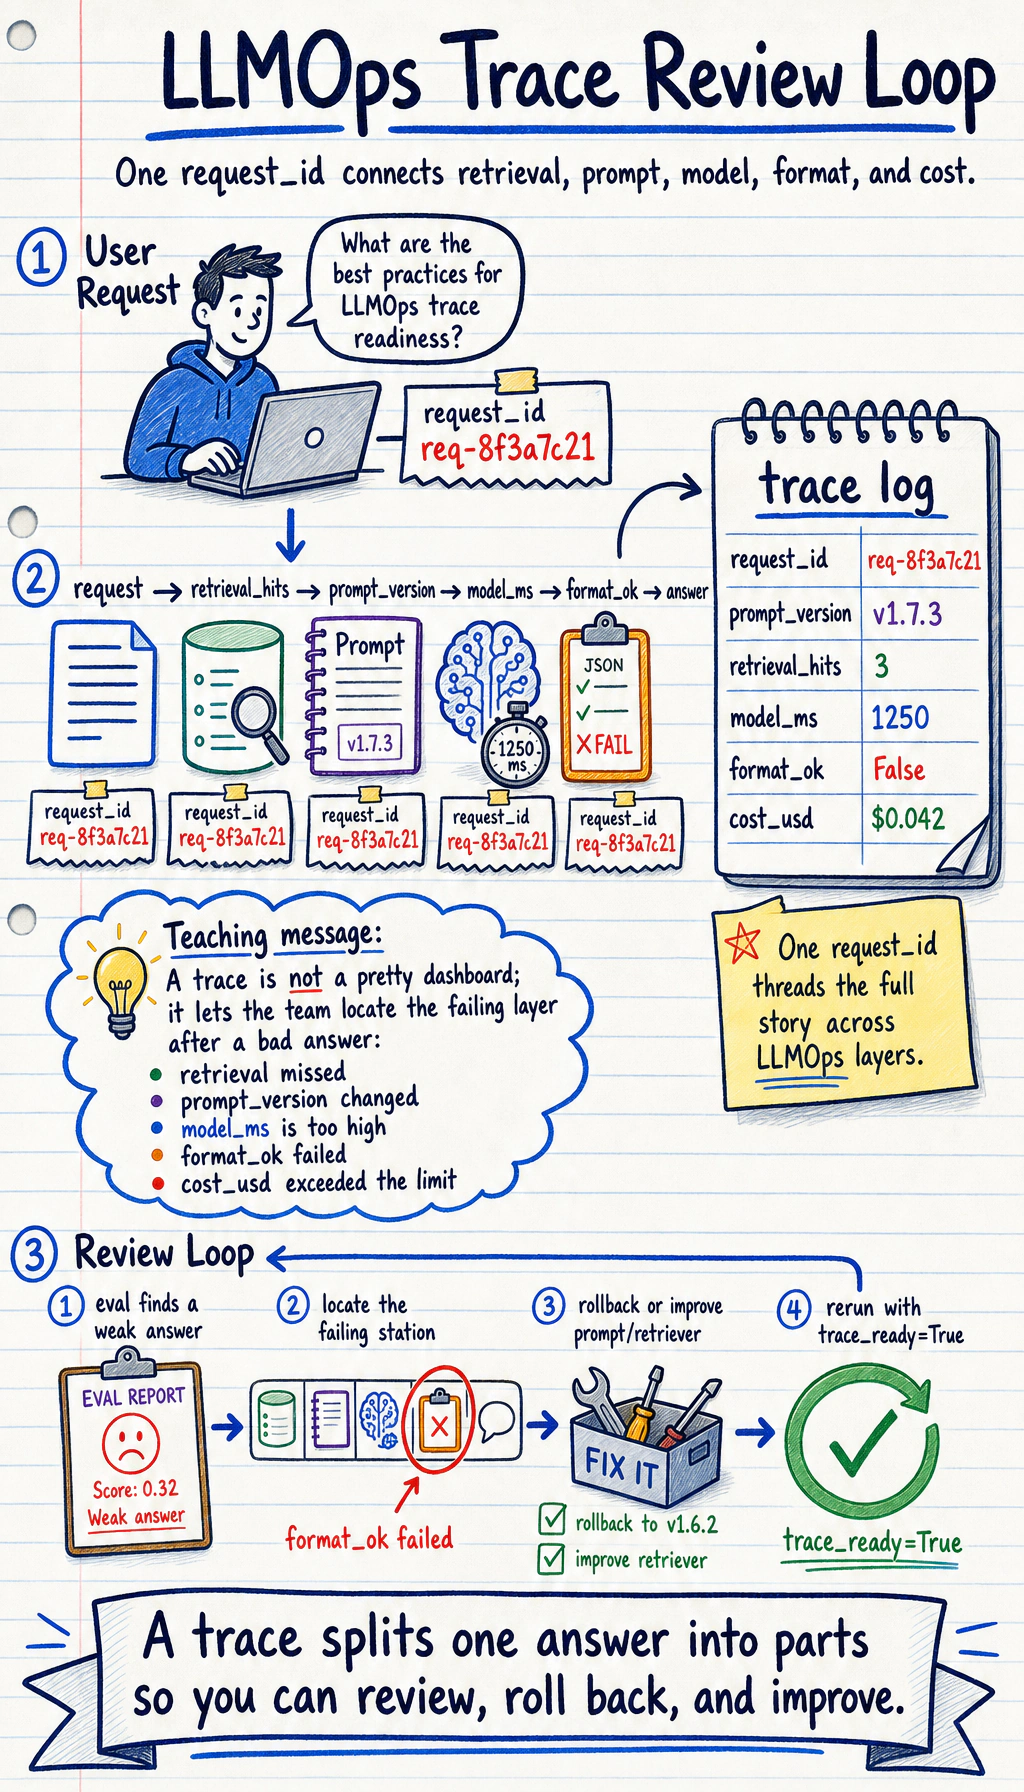 LLMOps Trace Review Loop
One request_id connects retrieval, prompt, model, format, and cost.
1 User
Request
What are the
best practices for
LLMOps trace
readiness?
request_id
req-8f3a7c21
trace log
request_id req-8f3a7c21
prompt_version v1.7.3
retrieval_hits 3
model_ms 1250
format_ok False
cost_usd $0.042
2 request → retrieval_hits → prompt_version → model_ms → format_ok → answer
Prompt
v1.7.3
1250
ms
JSON
✓
✓
X FAIL
request_id
req-8f3a7c21
request_id
req-8f3a7c21
request_id
req-8f3a7c21
request_id
req-8f3a7c21
request_id
req-8f3a7c21
One request_id
threads the full
story across
LLMOps layers.
Teaching message:
A trace is not a pretty dashboard;
it lets the team locate the failing layer
after a bad answer:
• retrieval missed
• prompt_version changed
• model_ms is too high
• format_ok failed
• cost_usd exceeded the limit
3 Review Loop
1 eval finds a
weak answer
EVAL REPORT
Score: 0.32
Weak answer
2 locate the
failing station
X
format_ok failed
3 rollback or improve
prompt/retriever
FIX IT
☑ rollback to v1.6.2
☑ improve retriever
4 rerun with
trace_ready=True
trace_ready=True
A trace splits one answer into parts
so you can review, roll back, and improve.